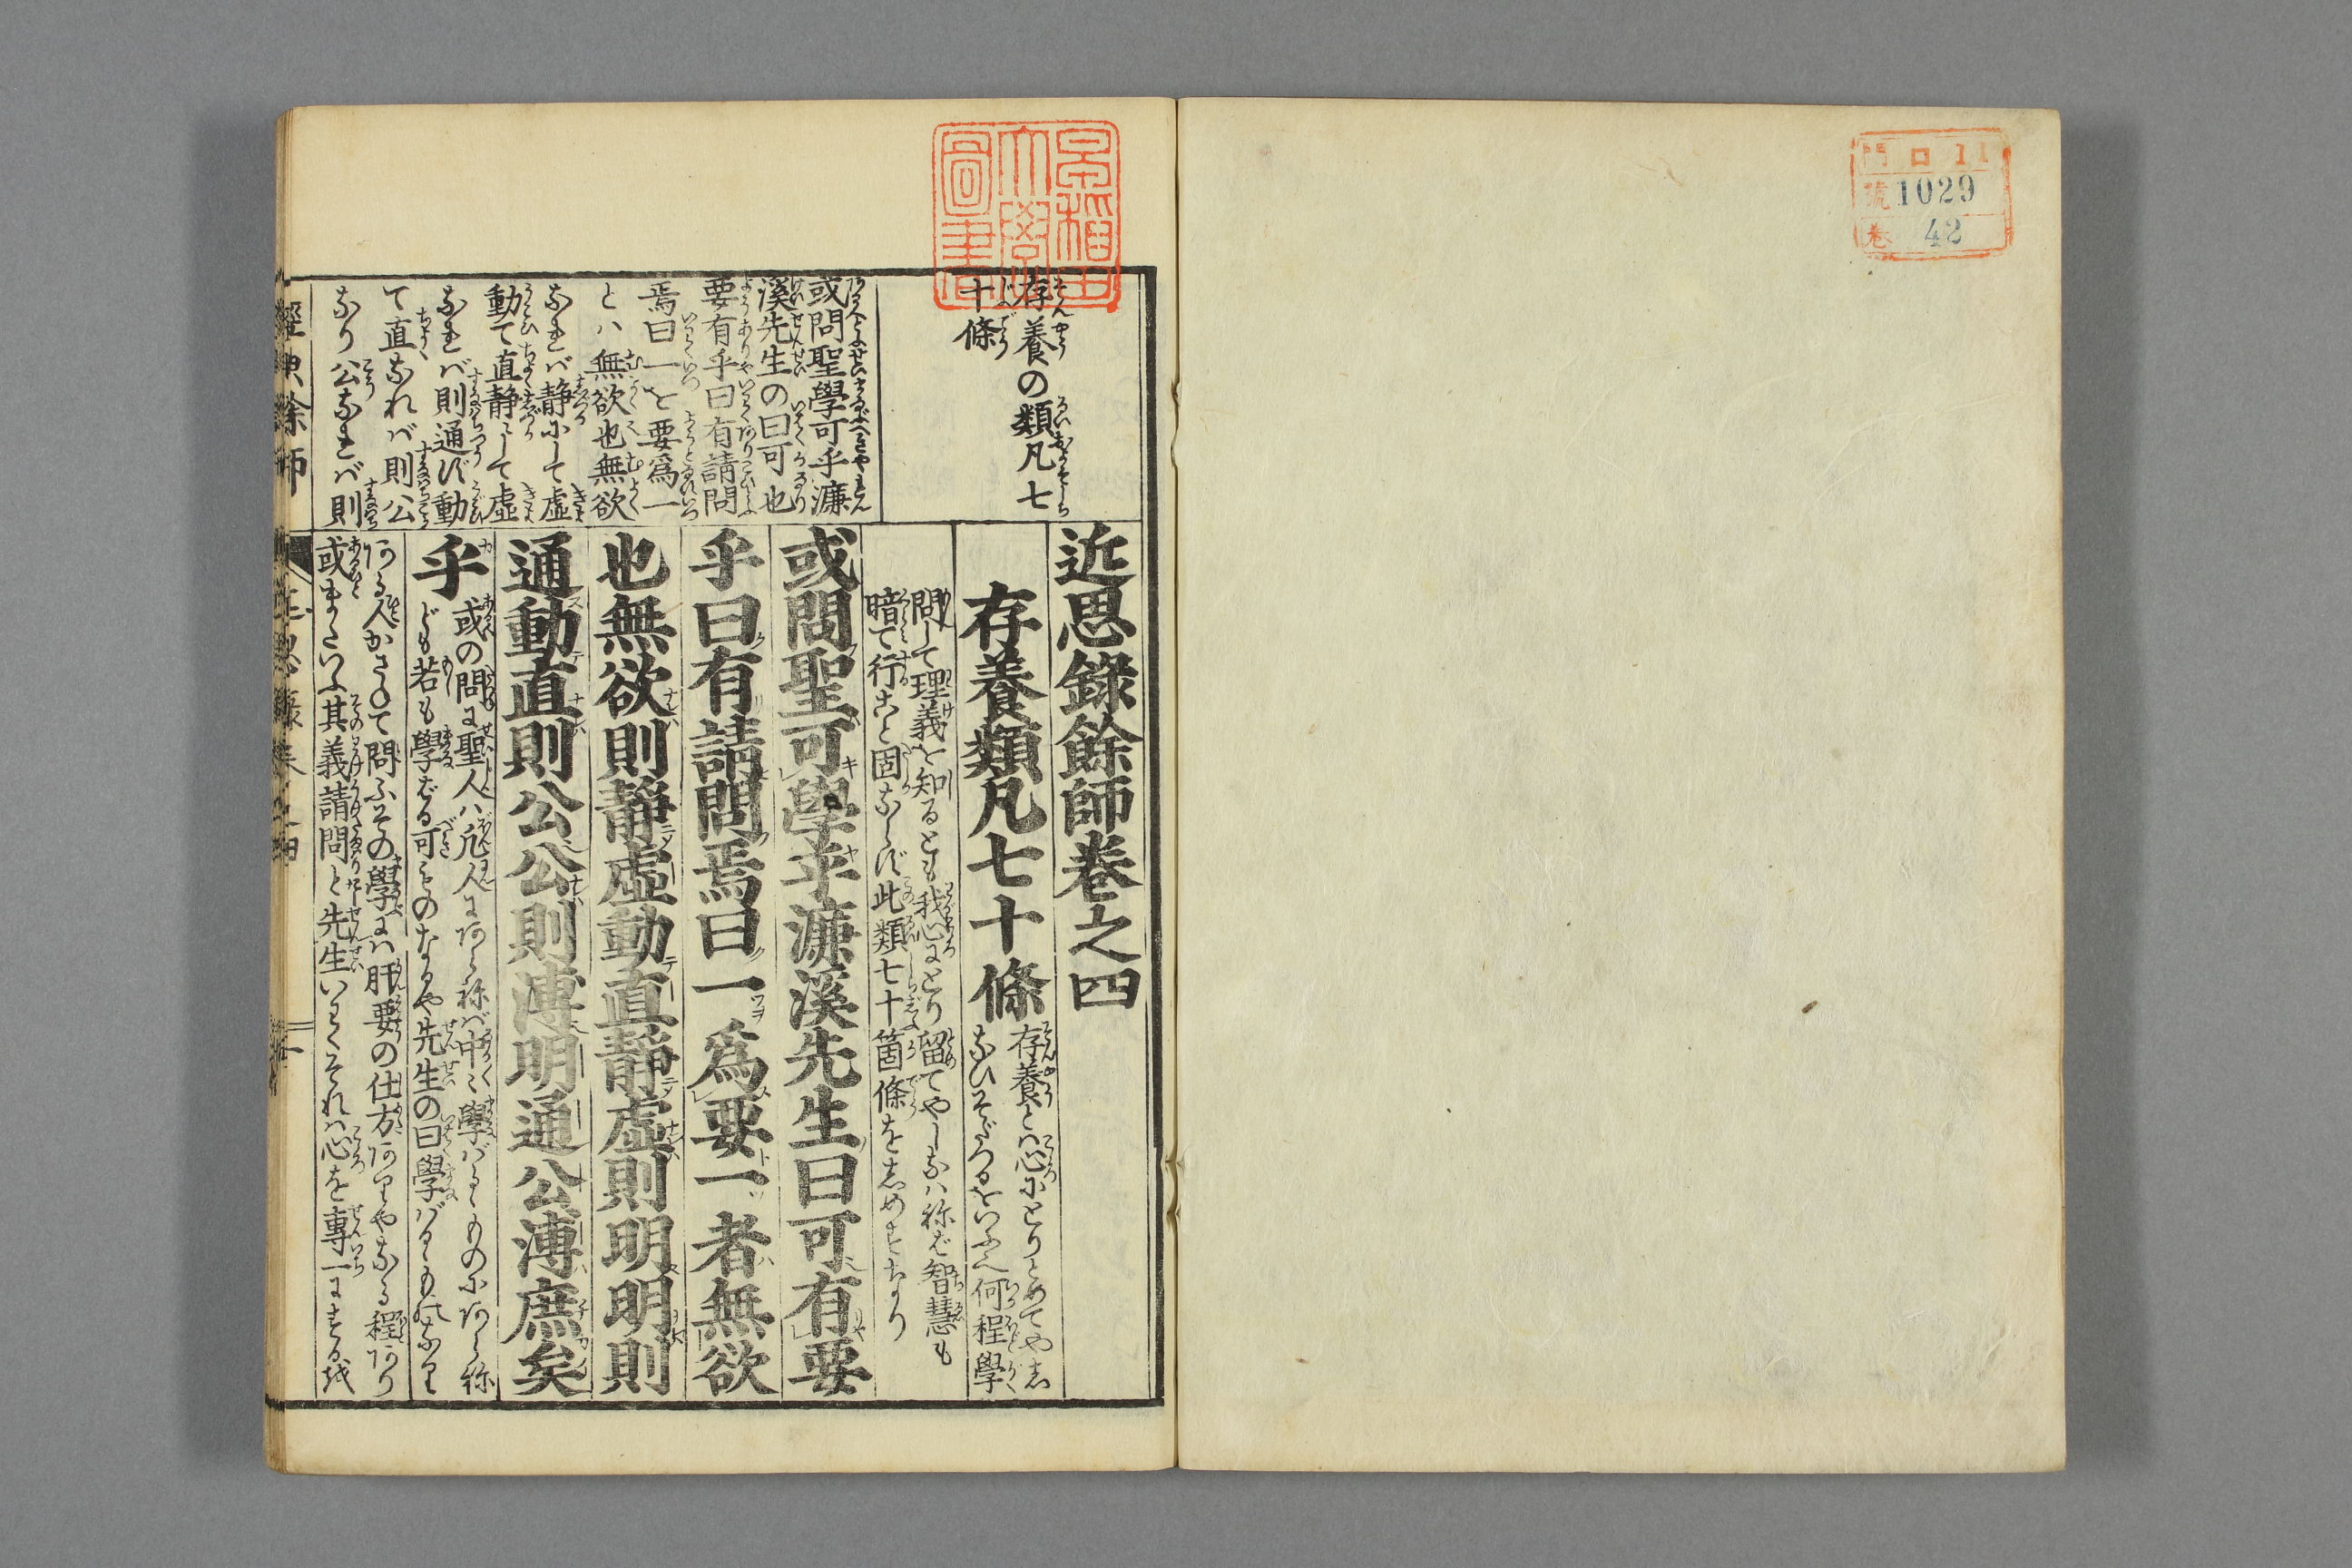 門 ロ 11
號 1029
巻 42
早稲田
大學
圖書
存養の類凡七
十條
或問聖學可乎濂
溪先生の曰可也
要有乎曰有請問
焉曰一を要爲一
とハ無欲也無欲
なれバ静にして虚
動て直静にして虚
なれバ則通ず動
て直なれバ則公
なり公なれバ則
近思錄餘師卷之四
存養類凡七十條
存養とハ心にとりとめてやし
なひそだつるをいふ何程學
問して理義を知るとも我心にとり留てやしなハねば智慧も
暗て行こと固ならず此類七十箇條をしめすなり
或問聖可學乎濂溪先生曰可有要
乎曰有請問焉曰一爲要一者無欲
也無欲則靜虛動直靜虛則明明則
通動直則公公則溥明通公溥庶矣
乎
或の問に聖人ハ凡人にあらねバ中々學バるゝものにあらね
ども若も學ばる可ものなるや先生の曰學バるゝものなり
ある人かさねて問ふその學にハ肝要の仕方ありやなる程あり
或またいふ其義請問と先生いわくそれハ心を專一にする
經典餘師